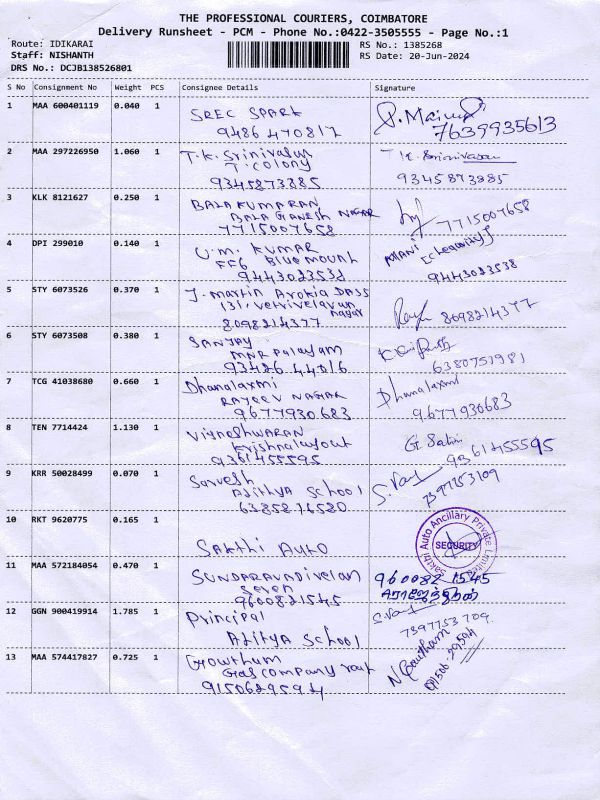 THE PROFESSIONAL COURIERS, COIMBATORE
Delivery Runsheet - PCM - Phone No.:0422-3505555 - Page No.:1
Route: IDIKARAI
RS No.: 1385268
Staff: NISHANTH
RS Date: 20-Jun-2024
DRS No.: DCJB138526801
S No Consignment No Weight PCS Consignee Details Signature
1 MAA 600401119 0.040 1
SREC SPARK
9486470817
7639935613
2 MAA 297226950 1.060 1
T.K. Srinivasan
T. Colony
9345873885
T.K. Srinivasan
9345873885
3 KLK 8121627 0.250 1
BALAKUMARAN
BALA GANESH NAGAR
7715007658
7715007658
4 DPI 299010 0.140 1
U.M. KUMAR
FF6 BLUEMOUNT
9443023538
9443023538
5 STY 6073526 0.370 1
J. Martin Arokia DASS
131, Vetrivelavun
nagar
8098214377
8098214377
6 STY 6073508 0.380 1
SANJAY
MNR Palayam
93426 44016
6380751981
7 TCG 41038680 0.660 1
Dhanalaxmi
RAJEEV NAGAR
9677930683
Dhanalaxmi
9677930683
8 TEN 7714424 1.130 1
VIGNESHWARAN
Krishnalayout
9361455595
9361455595
9 KRR 50028499 0.070 1
Sarvesh
Adithya School
6385876580
7397753109
10 RKT 9620775 0.165 1
SAKTHI AUTO
Sakthi Auto Ancillary Private Limited
SECURITY
11 MAA 572184054 0.470 1
SUNDARAVADIVELAN
Seven
9600821545
960082 1545
12 GGN 900419914 1.785 1
Principal
Aditya School
7397753709
13 MAA 574417827 0.725 1
Gowthum
Gas Company road
9150629594
N Gowtham
91506 29594